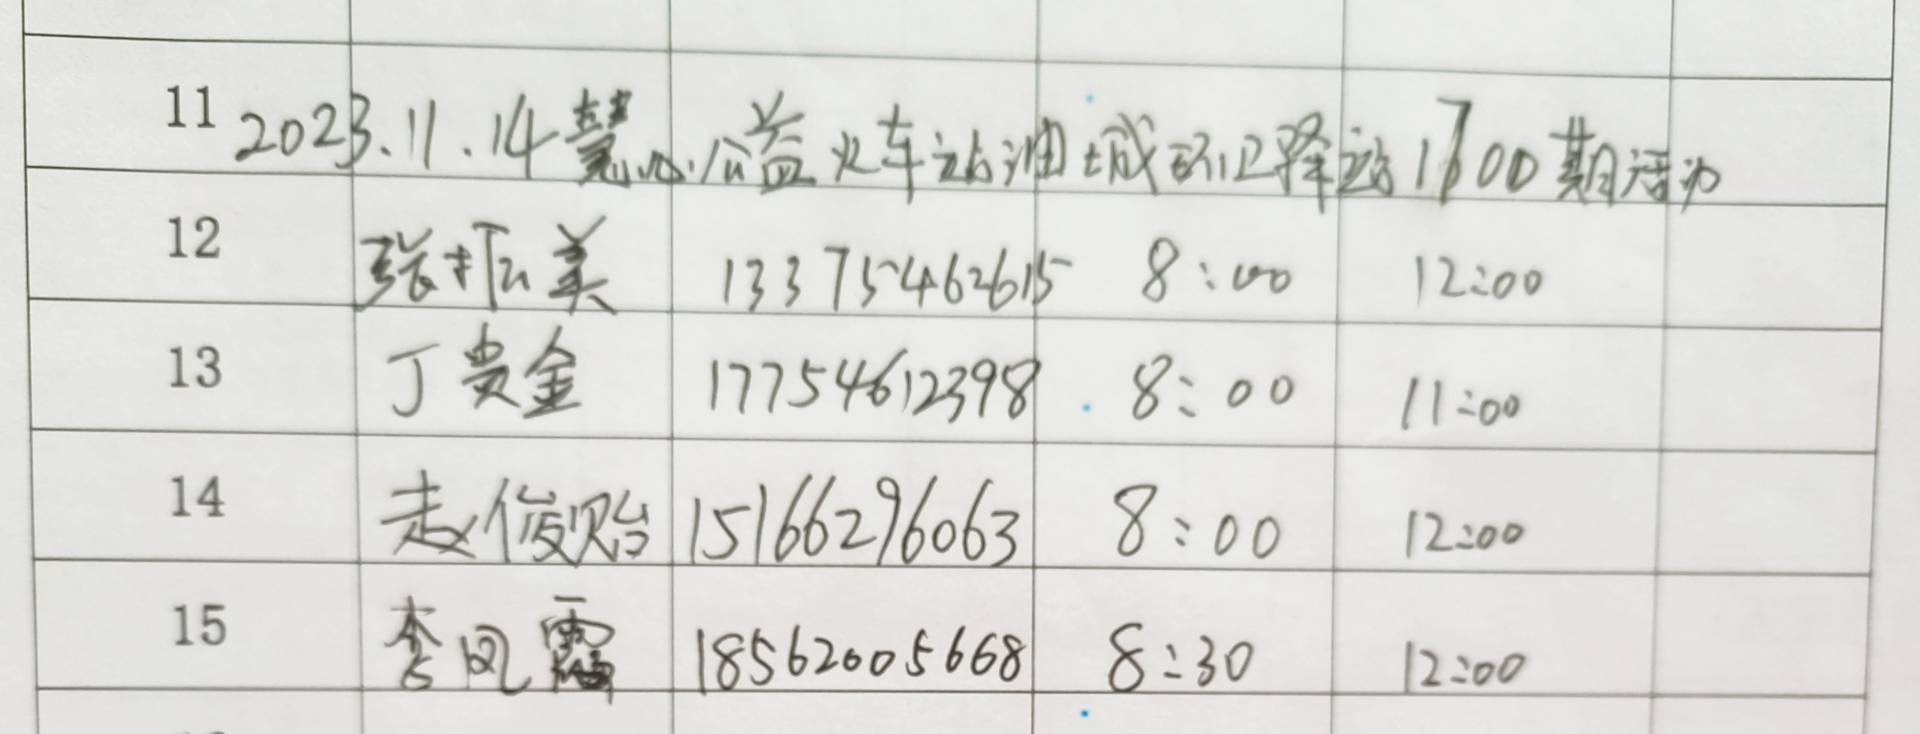 11 2023.11.14慧心公益火车站油城环卫驿站1700期活动
12 张振美 13375462615 8:00 12:00
13 丁贵金 17754612398 8:00 11:00
14 赵俊贻 15166296063 8:00 12:00
15 李凤霞 18562005668 8:30 12:00